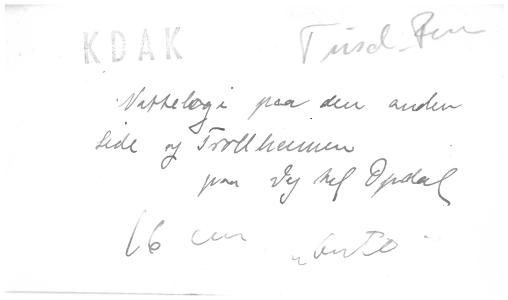 KDAK
Natteleje paa den anden
side af Trollheimen
paa Vej til Opdal
16 cm